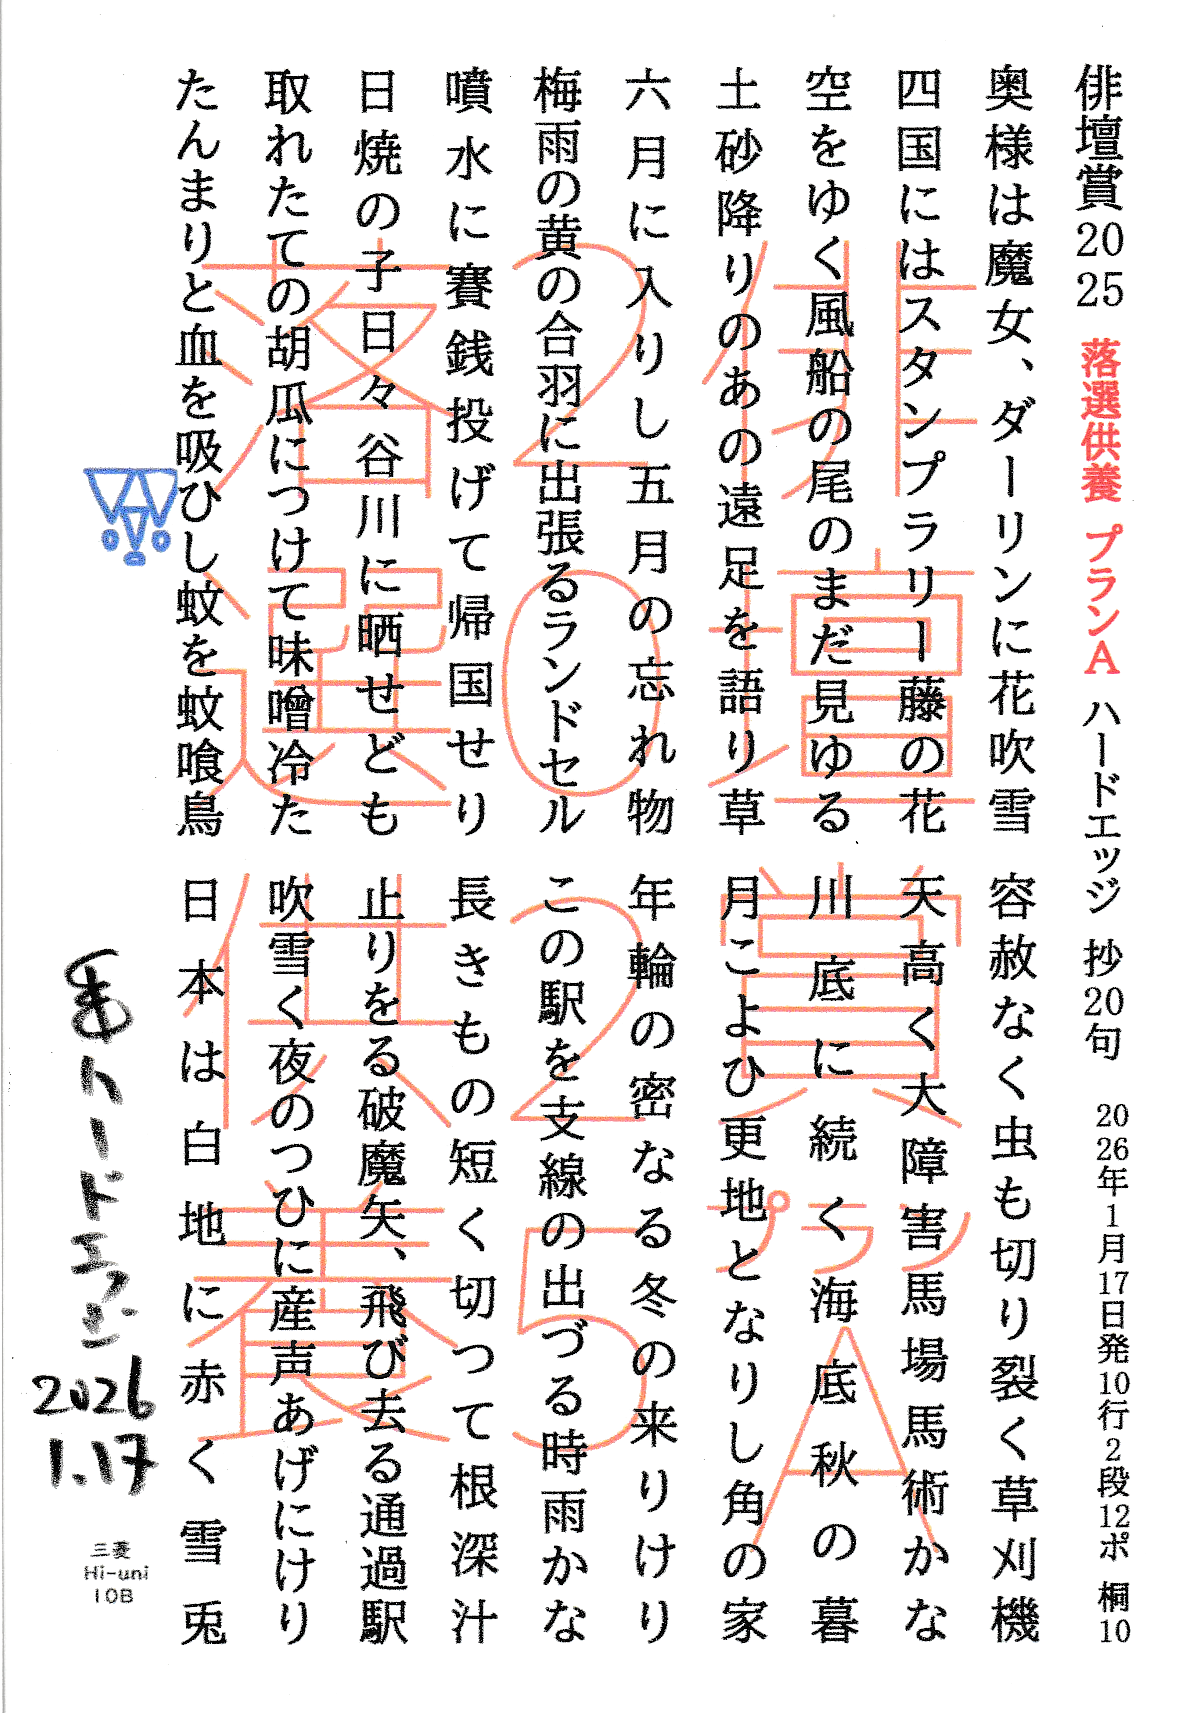 俳壇賞2025 落選供養 プランA ハードエッジ 抄20句 2026年1月17日発10行2段12ポ 桐10
奥様は魔女、ダーリンに花吹雪
四国にはスタンプラリー藤の花
空をゆく風船の尾のまだ見ゆる
土砂降りのあの遠足を語り草
六月に入りし五月の忘れ物
梅雨の黄の合羽に出張るランドセル
噴水に賽銭投げて帰国せり
日焼の子日々谷川に晒せども
取れたての胡瓜につけて味噌冷た
たんまりと血を吸ひし蚊を蚊喰鳥
容赦なく虫も切り裂く草刈機
天高く大障害馬場馬術かな
川底に続く海底秋の暮
月こよひ更地となりし角の家
年輪の密なる冬の来りけり
この駅を支線の出づる時雨かな
長きもの短く切つて根深汁
止りをる破魔矢、飛び去る通過駅
吹雪く夜のつひに産声あげにけり
日本は白地に赤く雪兎
俳壇賞
プランA
2025
落選供養
ハードエッジ
2026
1.17
三菱
Hi-uni
10B